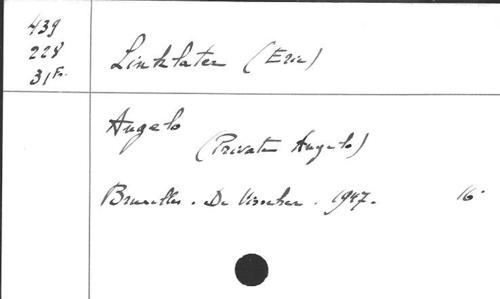 439
228
31 Fr.
Linklater (Eric)
Angelo
(Private Angelo)
Bruxelles. De Visscher. 1947. 16°